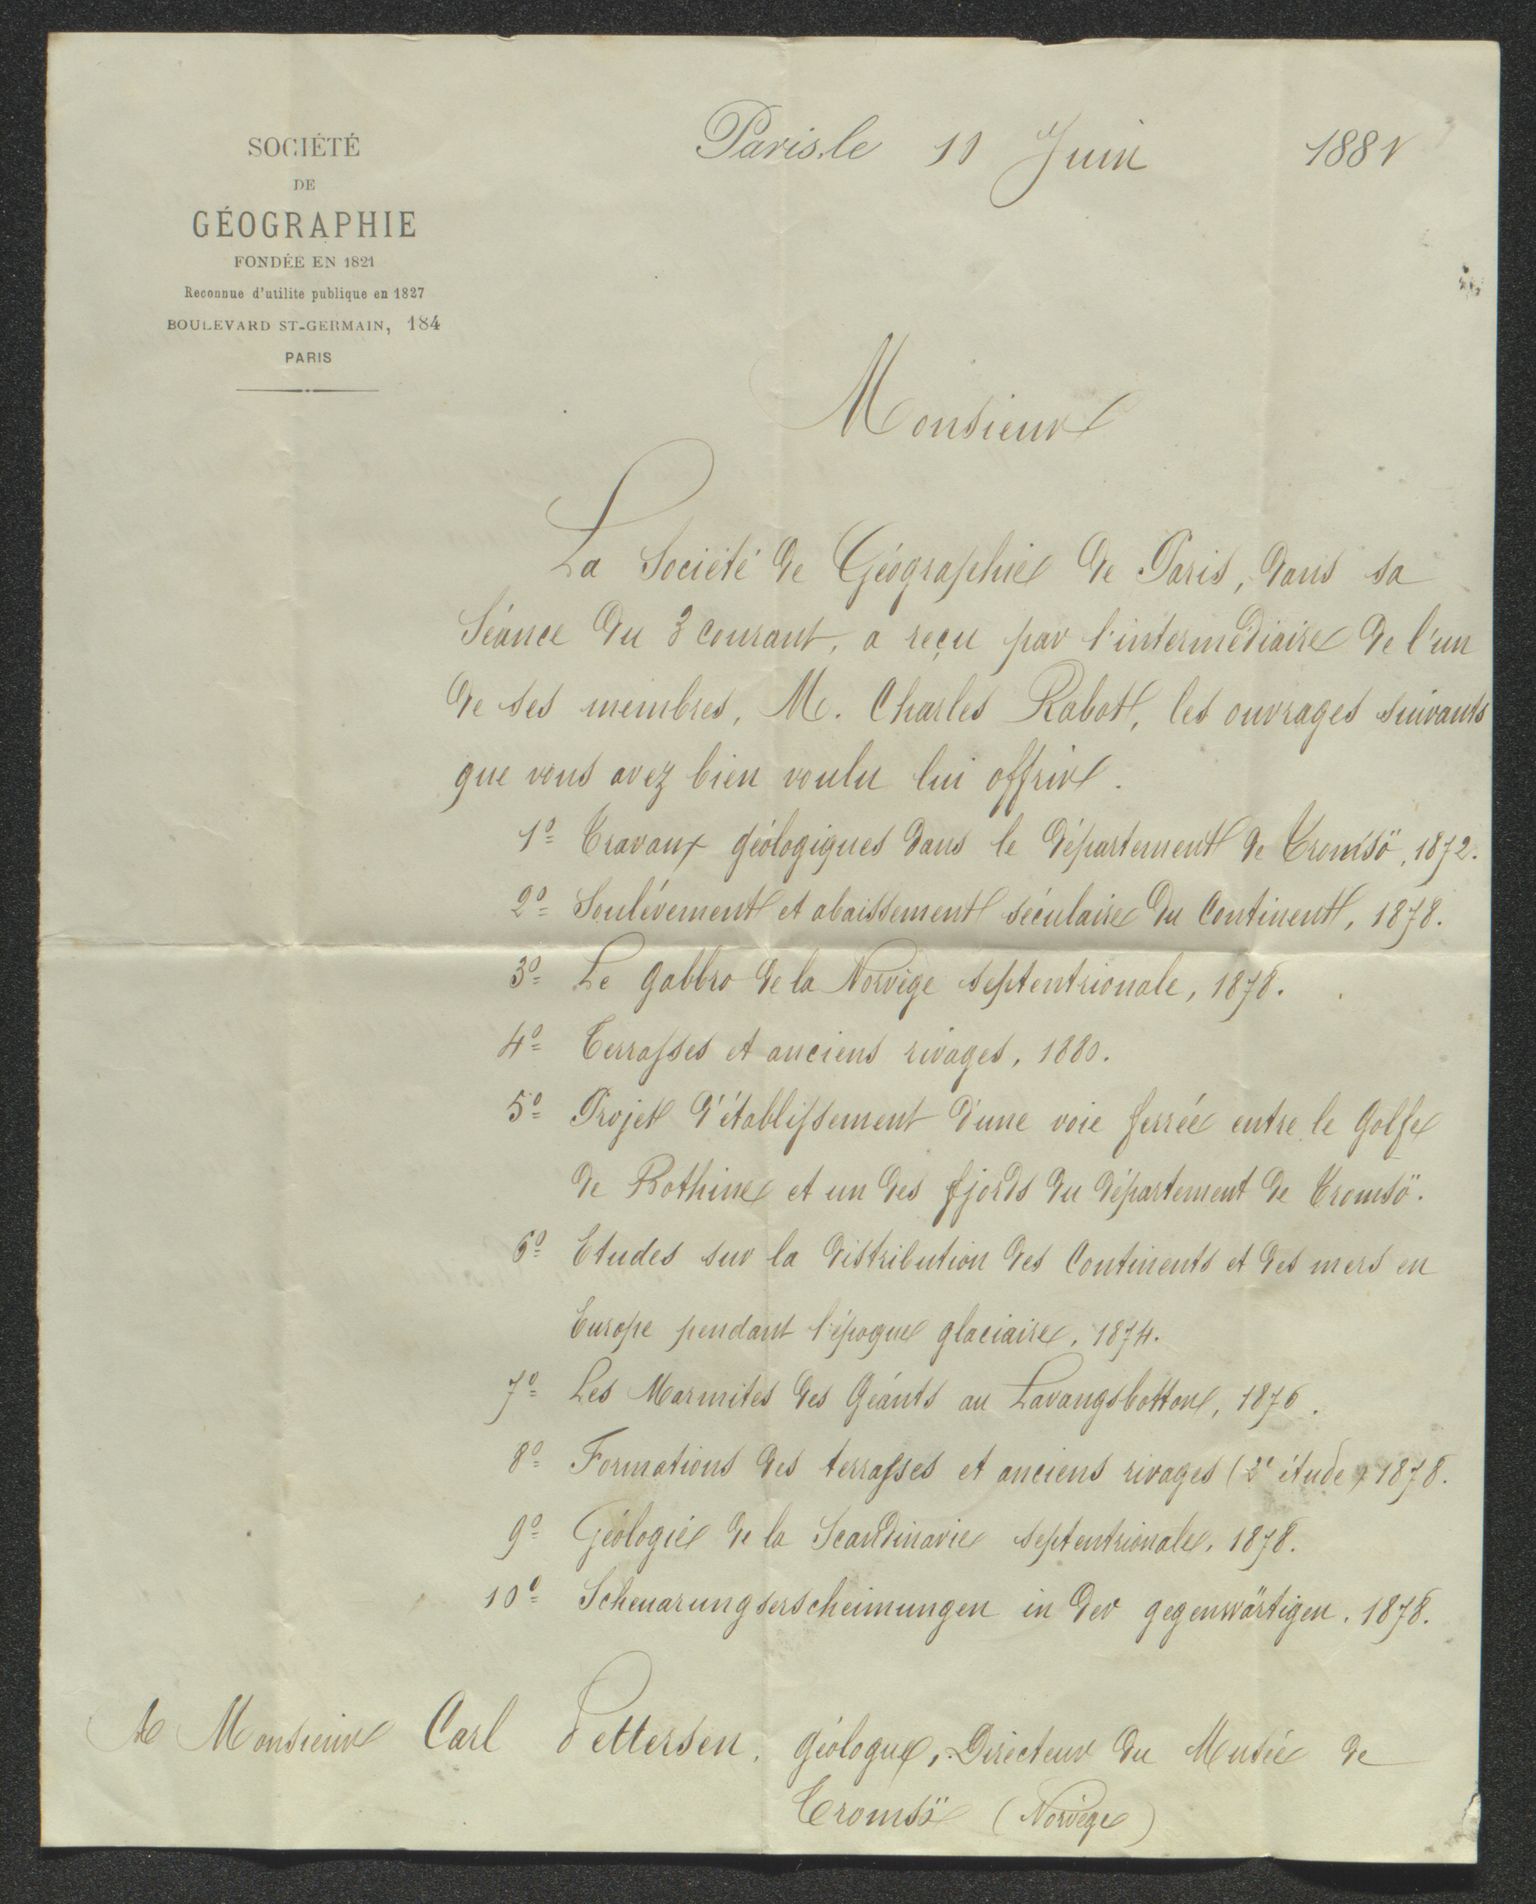 SOCIÉTÉ
DE
GÉOGRAPHIE
FONDÉE EN 1821
Reconnue d'utilite publique en 1827
BOULEVARD ST-GERMAIN, 184
PARIS
Paris, le 11 Juin 1881
Monsieur
La Société de Géographie de Paris, dans sa
Séance du 3 courant, a reçu par l'intermédiaire de l'un
de ses membres, M. Charles Rabot, les ouvrages suivants
que vous avez bien voulu lui offrir.
1º Travaux géologiques dans le département de Tromsö, 1872.
2º Soulévement et abaissement séculaire du Continent, 1878.
3º Le gabbro de la Norvège septentrionale, 1878.
4º Terrasses et anciens rivages, 1880.
5º Projet d'établissement d'une voie ferrée entre le Golfe
de Bothine et un des fjords du département de Tromsö.
6º Etudes sur la distribution des Continents et des mers en
Europe pendant l'époque glaciaire, 1874.
7º Les Marmites des Géants au Lavangsbotton, 1876.
8º Formations des terrasses et anciens rivages (2e étude) 1878.
9º Géologie de la Scandinavie septentrionale, 1878.
10º Scheuarungserscheimungen in der gegenwärtigen. 1878.
A Monsieur Carl Pettersen, géologue, Directeur du Musée de
Tromsö (Norvège)